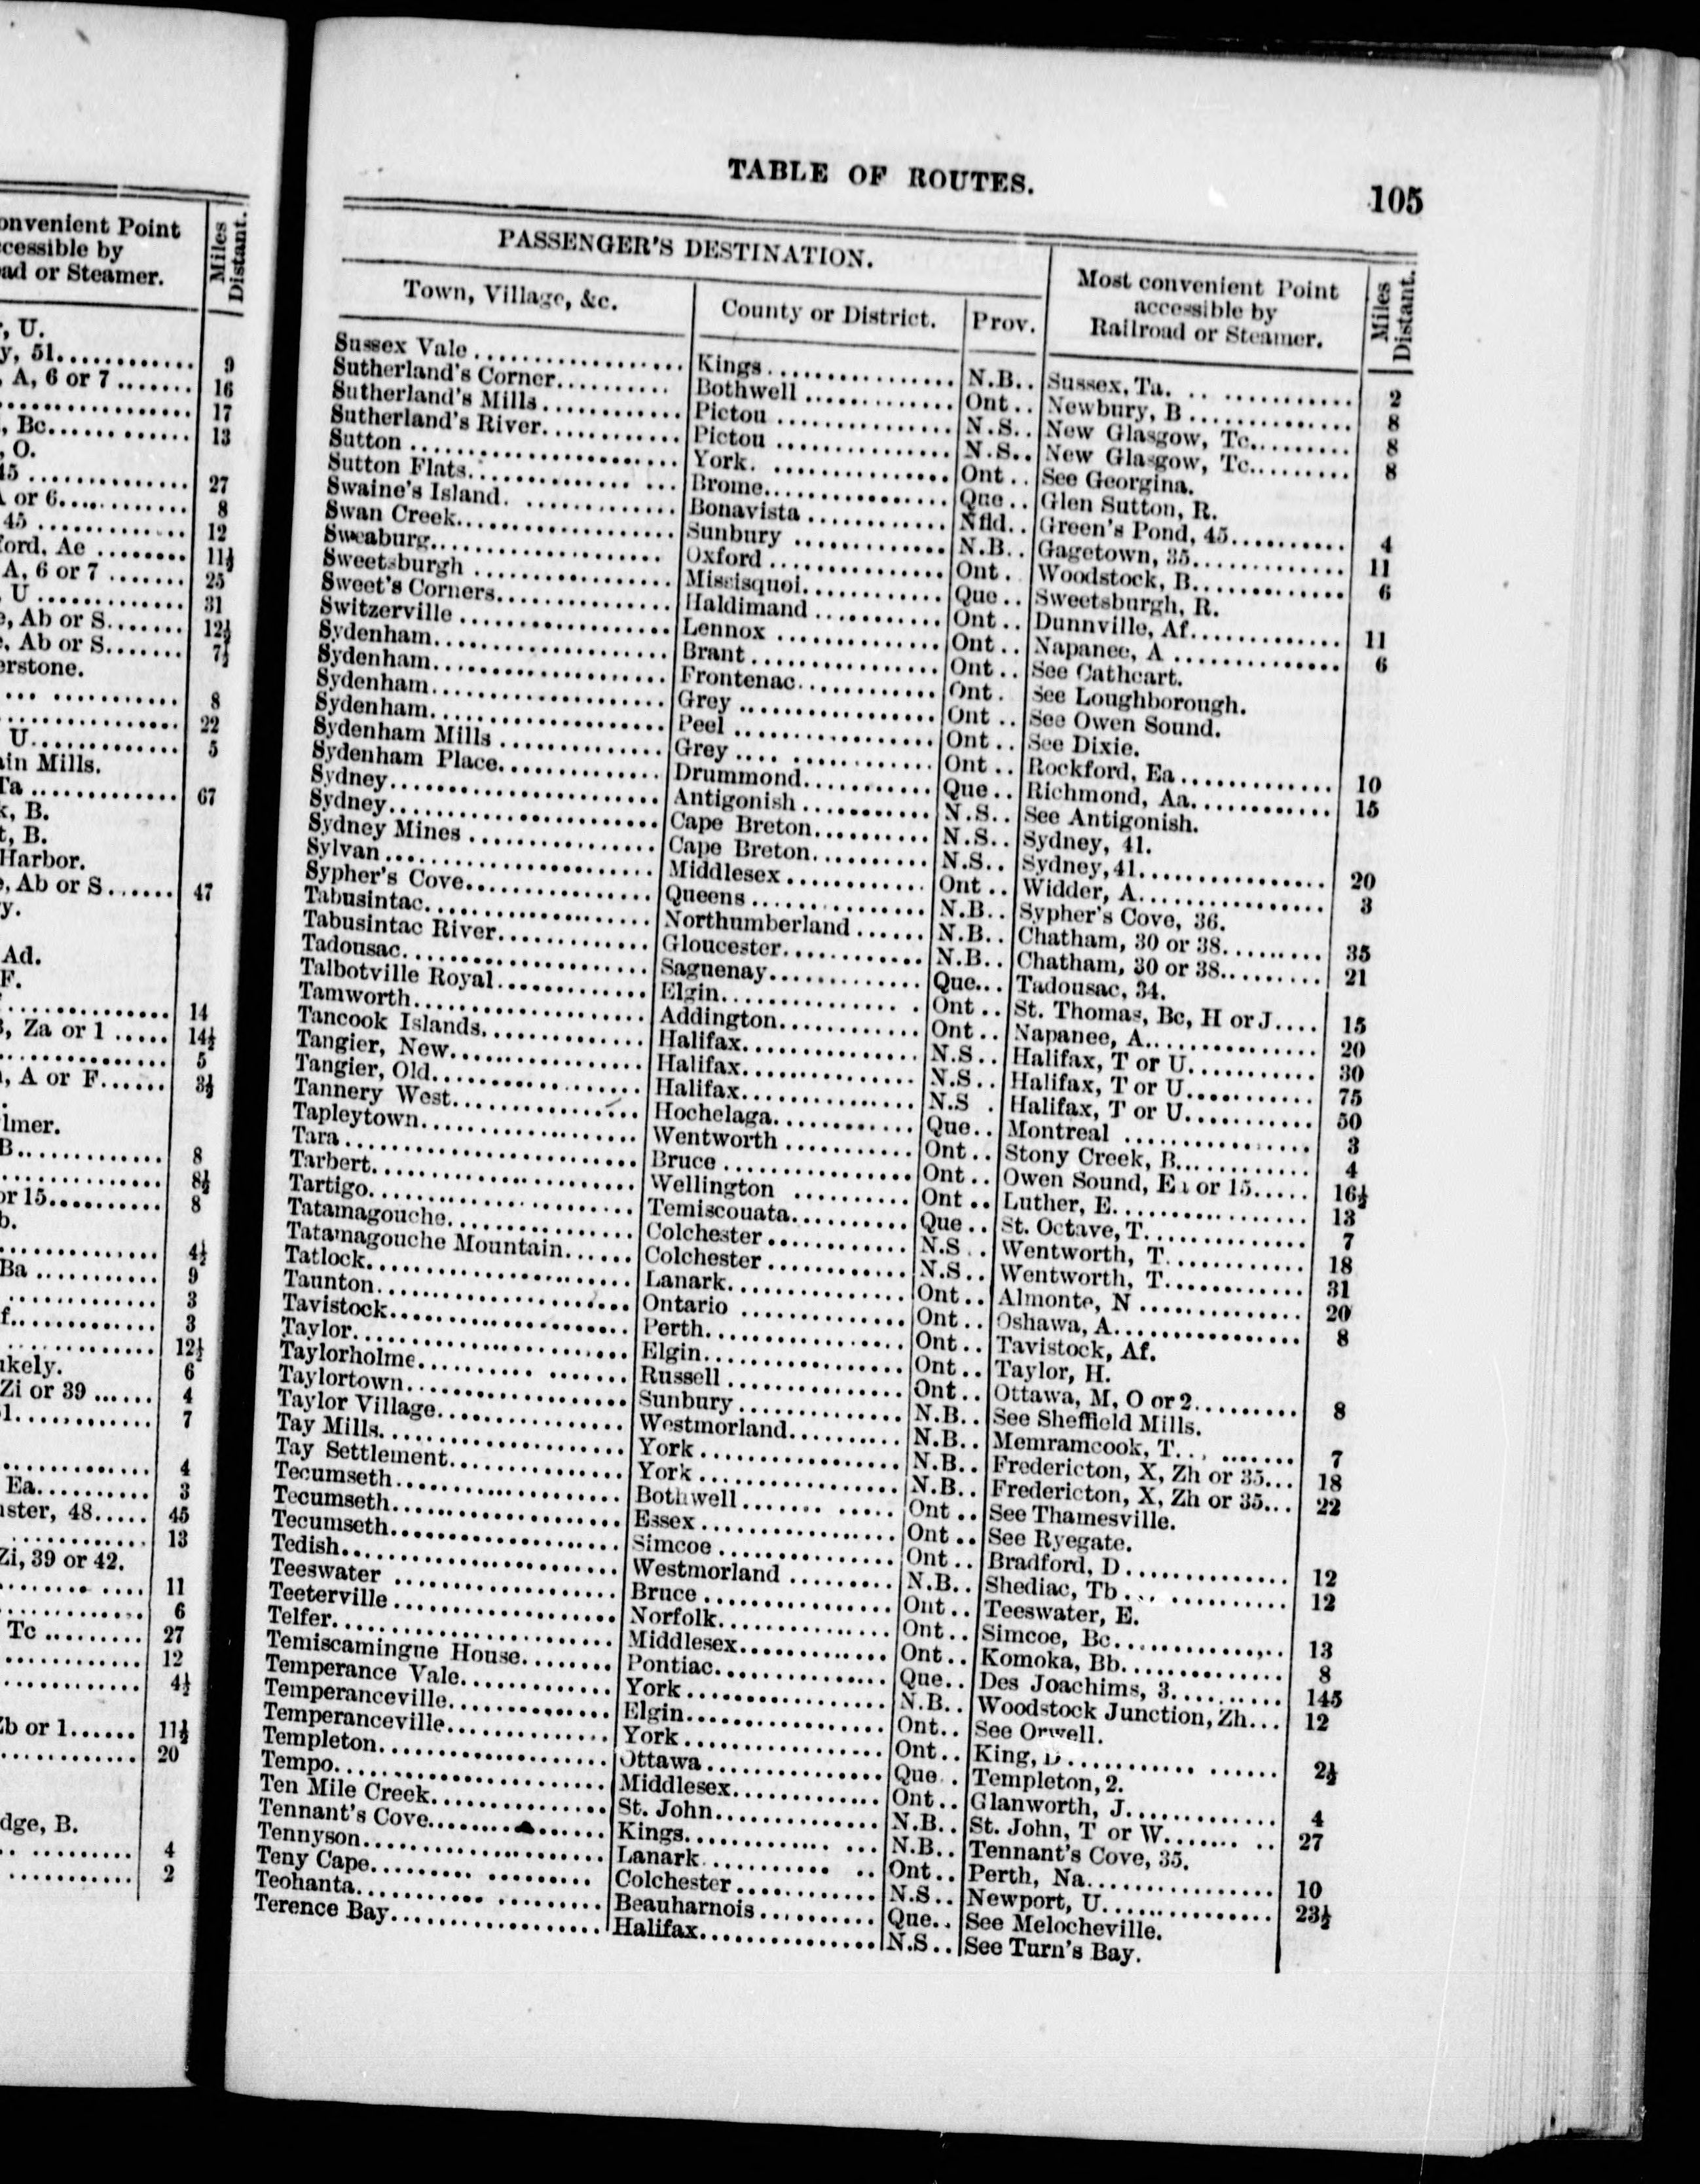 onvenient Point
ccessible by
oad or Steamer.
Miles
Distant.
, U.
y, 51............ 9
, A, 6 or 7....... 16
................ 17
, Bc............ 13
, O.
45 .............. 27
A or 6............ 8
45 ............. 12
ford, Ae ......... 11½
A, 6 or 7 ....... 25
U ............. 31
e, Ab or S....... 12½
e, Ab or S....... 7½
erstone.
............... 8
............... 22
U............. 5
ain Mills.
Ta ............. 67
k, B.
t, B.
Harbor.
e, Ab or S...... 47
y.
Ad.
F.
............... 14
, Za or 1 ..... 14½
............... 5
, A or F...... 3½
lmer.
B............. 8
............... 8½
or 15.......... 8
b.
............... 4½
Ba ............ 9
............... 3
f.............. 3
............... 12½
akely. 6
Zi or 39 ...... 4
1............ 7
............... 4
Ea........... 3
nster, 48..... 45
............... 13
Zi, 39 or 42.
............... 11
............... 6
Tc ......... 27
............... 12
............... 4½
Zb or 1...... 11½
............... 20
dge, B.
............... 4
............... 2
TABLE OF ROUTES.
105
PASSENGER'S DESTINATION.
Most convenient Point
accessible by
Railroad or Steamer.
Miles
Distant.
Town, Village, &c. County or District. Prov.
Sussex Vale ........ Kings........ N.B.. Sussex, Ta. ........ 2
Sutherland's Corner........ Bothwell ........ Ont.. Newbury, B ........ 8
Sutherland's Mills ........ Pictou ........ N.S.. New Glasgow, Tc........ 8
Sutherland's River........ Pictou ........ N.S.. New Glasgow, Tc........ 8
Sutton ........ York. ........ Ont.. See Georgina.
Sutton Flats........ Brome........ Que.. Glen Sutton, R.
Swaine's Island. ........ Bonavista ........ Nfld.. Green's Pond, 45........ 4
Swan Creek........ Sunbury ........ N.B.. Gagetown, 35........ 11
Sweaburg........ Oxford ........ Ont. Woodstock, B........ 6
Sweetsburgh ........ Missisquoi........ Que.. Sweetsburgh, R.
Sweet's Corners........ Haldimand ........ Ont.. Dunnville, Af........ 11
Switzerville ........ Lennox ........ Ont.. Napanee, A ........ 6
Sydenham........ Brant ........ Ont.. See Cathcart.
Sydenham........ Frontenac........ Ont. See Loughborough.
Sydenham........ Grey ........ Ont.. See Owen Sound.
Sydenham........ Peel ........ Ont.. See Dixie.
Sydenham Mills ........ Grey ........ Ont.. Rockford, Ea ........ 10
Sydenham Place........ Drummond........ Que.. Richmond, Aa........ 15
Sydney........ Antigonish ........ N.S.. See Antigonish.
Sydney........ Cape Breton........ N.S.. Sydney, 41.
Sydney Mines ........ Cape Breton........ N.S.. Sydney, 41........ 20
Sylvan ........ Middlesex ........ Ont.. Widder, A........ 3
Sypher's Cove........ Queens ........ N.B.. Sypher's Cove, 36.
Tabusintac........ Northumberland ...... N.B.. Chatham, 30 or 38........ 35
Tabusintac River........ Gloucester........ N.B.. Chatham, 30 or 38........ 21
Tadousac........ Saguenay........ Que... Tadousac, 34.
Talbotville Royal........ Elgin........ Ont.. St. Thomas, Bc, H or J.... 15
Tamworth........ Addington........ Ont.. Napanee, A........ 20
Tancook Islands........ Halifax........ N.S.. Halifax, T or U........ 30
Tangier, New........ Halifax........ N.S.. Halifax, T or U........ 75
Tangier, Old........ Halifax........ N.S . Halifax, T or U........ 50
Tannery West........ Hochelaga........ Que.. Montreal ........ 3
Tapleytown........ Wentworth ........ Ont.. Stony Creek, B........ 4
Tara ........ Bruce ........ Ont.. Owen Sound, Ea or 15..... 16½
Tarbert........ Wellington ........ Ont.. Luther, E........ 13
Tartigo........ Temiscouata........ Que.. St. Octave, T........ 7
Tatamagouche........ Colchester ........ N.S.. Wentworth, T........ 18
Tatamagouche Mountain...... Colchester ........ N.S.. Wentworth, T........ 31
Tatlock........ Lanark........ Ont.. Almonte, N ........ 20
Taunton........ Ontario ........ Ont.. Oshawa, A........ 8
Tavistock........ Perth........ Ont.. Tavistock, Af.
Taylor........ Elgin........ Ont.. Taylor, H.
Taylorholme........ Russell ........ Ont.. Ottawa, M, O or 2........ 8
Taylortown........ Sunbury ........ N.B.. See Sheffield Mills.
Taylor Village........ Westmorland........ N.B.. Memramcook, T........ 7
Tay Mills........ York ........ N.B.. Fredericton, X, Zh or 35... 18
Tay Settlement........ York ........ N.B.. Fredericton, X, Zh or 35... 22
Tecumseth........ Bothwell ........ Ont.. See Thamesville.
Tecumseth........ Essex ........ Ont.. See Ryegate.
Tecumseth........ Simcoe ........ Ont.. Bradford, D ........ 12
Tedish........ Westmorland ........ N.B.. Shediac, Tb ........ 12
Teeswater ........ Bruce ........ Ont.. Teeswater, E.
Teeterville ........ Norfolk........ Ont.. Simcoe, Bc........ 13
Telfer........ Middlesex........ Ont.. Komoka, Bb........ 8
Temiscamingue House........ Pontiac........ Que.. Des Joachims, 3........ 145
Temperance Vale........ York ........ N.B.. Woodstock Junction, Zh... 12
Temperanceville........ Elgin........ Ont.. See Orwell.
Temperanceville........ York........ Ont.. King, D ........ 2½
Templeton........ Ottawa ........ Que.. Templeton, 2.
Tempo........ Middlesex........ Ont.. Glanworth, J........ 4
Ten Mile Creek........ St. John........ N.B.. St. John, T or W........ 27
Tennant's Cove........ Kings........ N.B.. Tennant's Cove, 35.
Tennyson........ Lanark ........ Ont.. Perth, Na........ 10
Teny Cape........ Colchester ........ N.S.. Newport, U........ 23½
Teohanta........ Beauharnois ........ Que.. See Melocheville.
Terence Bay........ Halifax........ N.S.. See Turn's Bay.